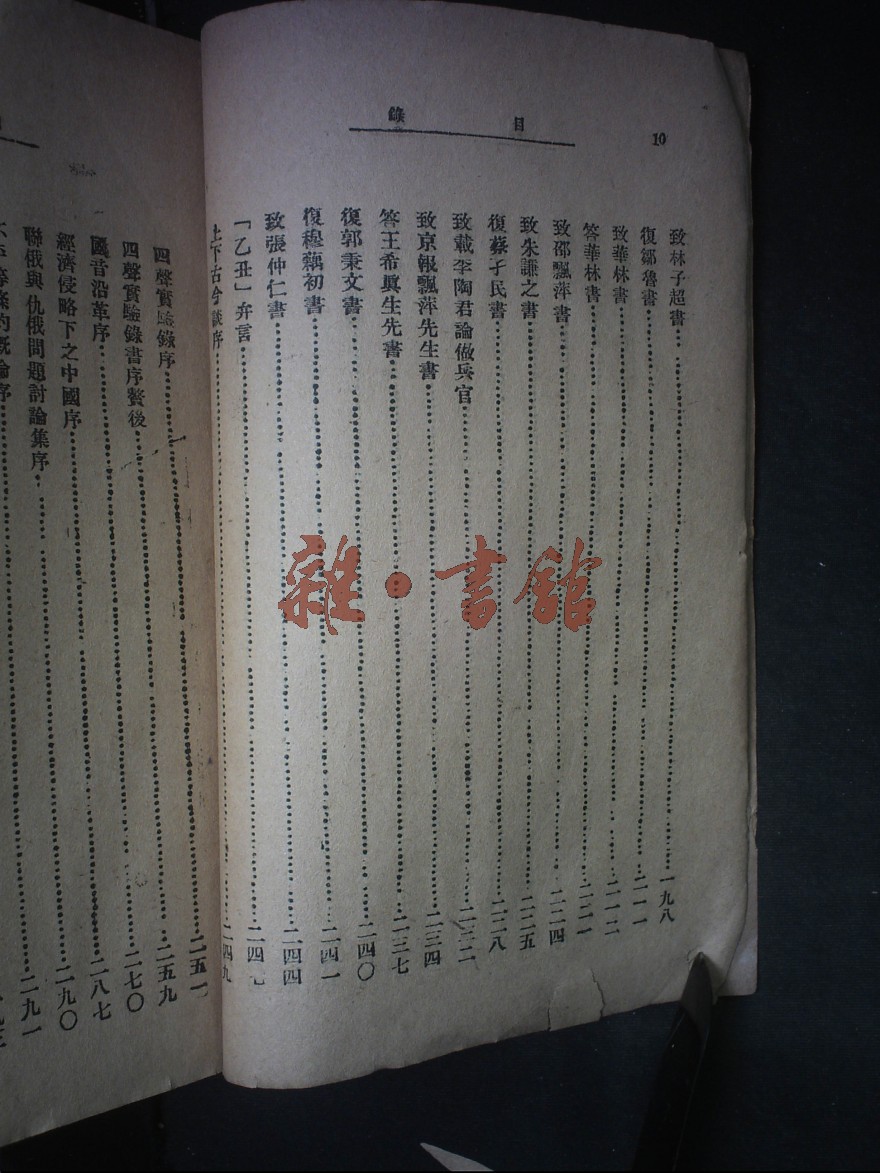 10
目錄
致林子超書 一九八
復鄒魯書 二一一
致華林書 二一二
答華林書 二二一
致邵飄萍書 二二四
致朱謙之書 二二五
復蔡孑民書 二二八
致戴季陶君論做兵官 二三二
致京報飄萍先生書 二三四
答王希眞生先書 二三七
復郭秉文書 二四〇
復穆藕初書 二四一
致張仲仁書 二四四
「乙丑」弁言
上下古今談序 二四九
二五一
四聲實驗錄序 二五九
四聲實驗錄書序贅後 二七〇
國音沿革序 二八七
經濟侵略下之中國序 二九〇
聯俄與仇俄問題討論集序 二九一
等條約概論序
雜·書館